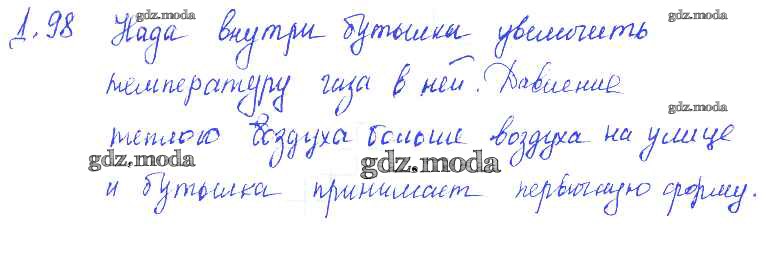 gdz.moda gdz.moda
1.98 Нада внутри бутылки увеличить
gdz.moda
температуру газа в ней. Давление
gdz.moda
теплого воздуха больше воздуха на улице
gdz.moda gdz.moda
и бутылка принимает первичную форму.